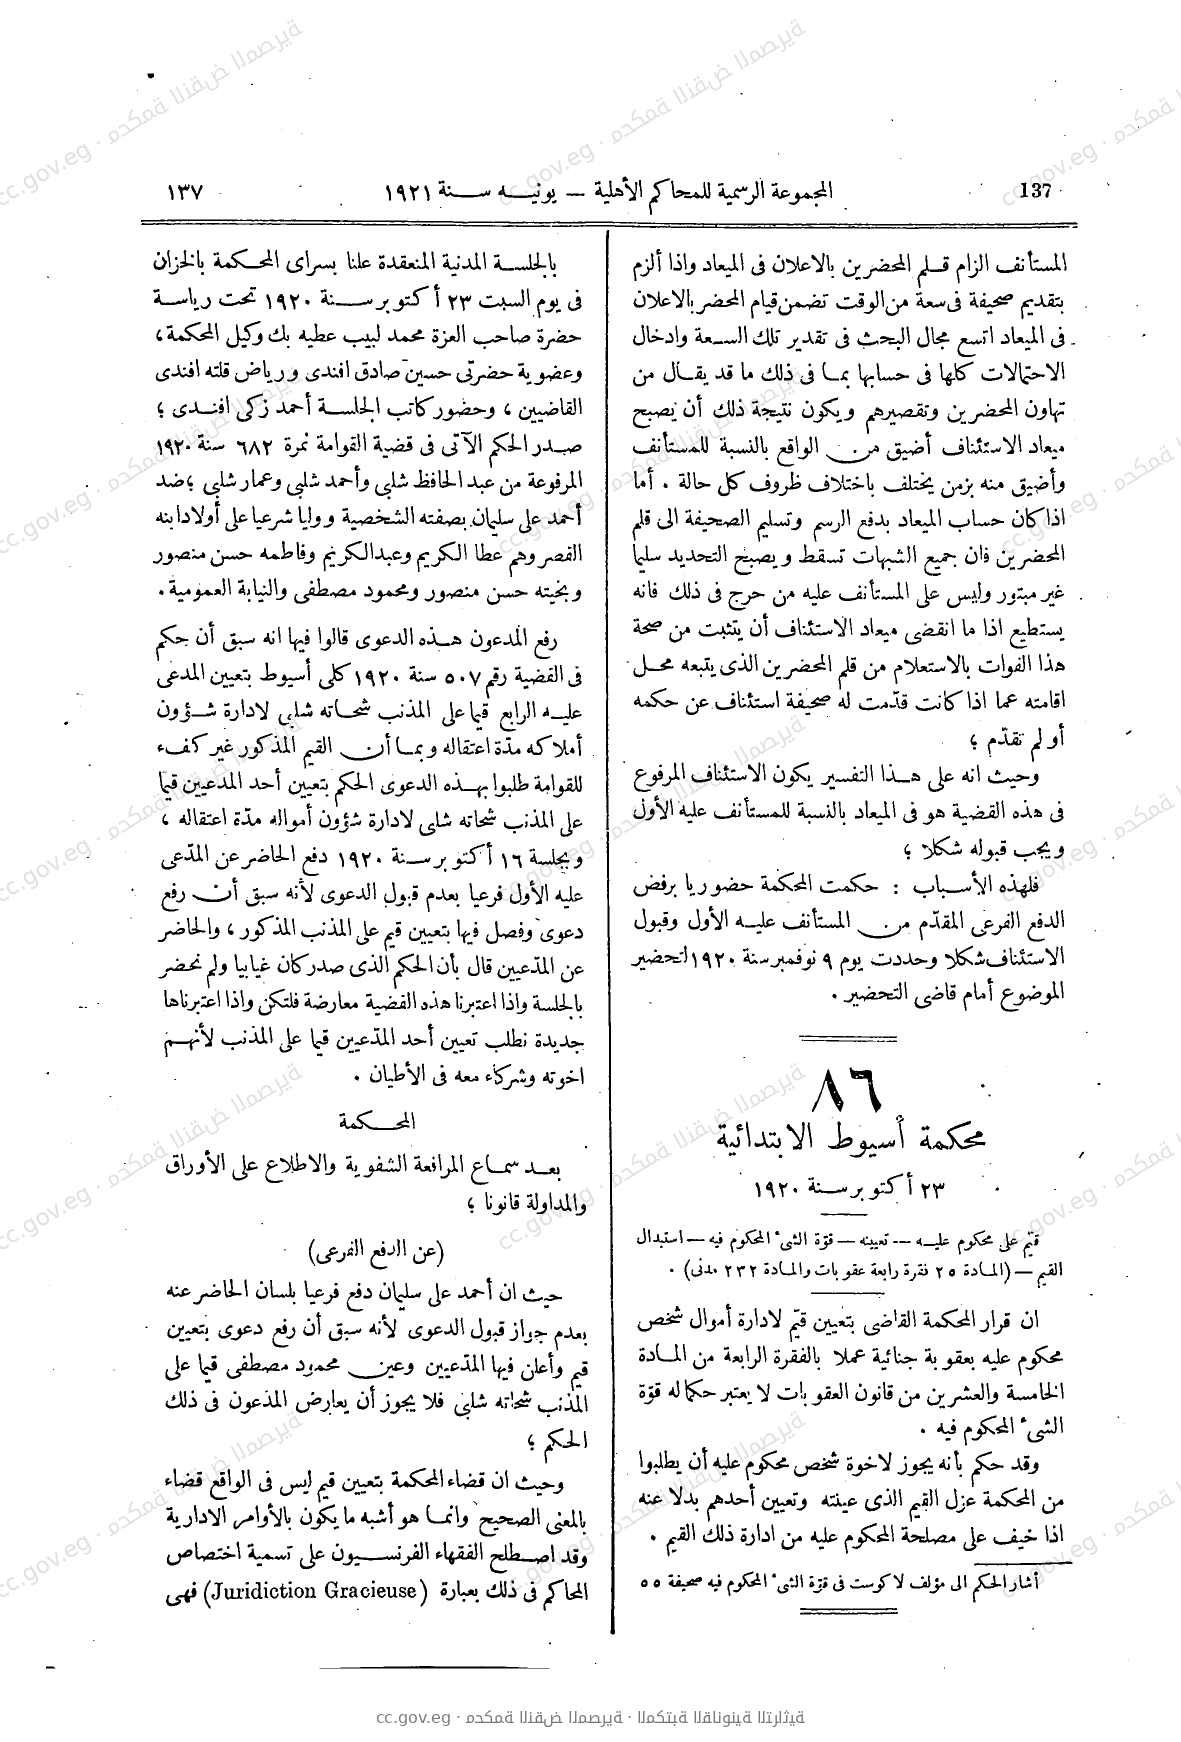 137
المجموعة الرسمية للمحاكم الأهلية — يونيه سنة ١٩٢١
١٣٧
المستأنف الزام قلم المحضرين بالاعلان فى الميعاد واذا ألزم
بتقديم صحيفة فى سعة من الوقت تضمن قيام المحضر بالاعلان
فى الميعاد اتسع مجال البحث فى تقدير تلك السعة وادخال
الاحتمالات كلها فى حسابها بما فى ذلك ما قد يقال من
تهاون المحضرين وتقصيرهم ويكون نتيجة ذلك أن يصبح
ميعاد الاستئناف أضيق من الواقع بالنسبة للمستأنف
وأضيق منه بزمن يختلف باختلاف ظروف كل حالة . أما
اذا كان حساب الميعاد بدفع الرسم وتسليم الصحيفة الى قلم
المحضرين فان جميع الشبهات تسقط ويصبح التحديد سليما
غير مبتور وليس على المستأنف عليه من حرج فى ذلك فانه
يستطيع اذا ما انقضى ميعاد الاستئناف أن يتثبت من صحة
هذا الفوات بالاستعلام من قلم المحضرين الذى يتبعه محل
اقامته عما اذا كانت قدّمت له صحيفة استئناف عن حكمه
أو لم تقدّم ؛
وحيث انه على هذا التفسير يكون الاستئناف المرفوع
فى هذه القضية هو فى الميعاد بالنسبة للمستأنف عليه الأول
ويجب قبوله شكلا ؛
فلهذه الأسباب : حكمت المحكمة حضوريا برفض
الدفع الفرعى المقدّم من المستأنف عليه الأول وقبول
الاستئناف شكلا وحددت يوم ٩ نوفمبر سنة ١٩٢٠ لتحضير
الموضوع أمام قاضى التحضير .
٨٦
محكمة أسيوط الابتدائية
٢٣ أكتوبر سنة ١٩٢٠
قيّم على محكوم عليه — تعيينه — قوّة الشىء المحكوم فيه — استبدال
القيم — (المادة ٢٥ فقرة رابعة عقوبات والمادة ٢٣٢ مدنى) .
ان قرار المحكمة القاضى بتعيين قيّم لادارة أموال شخص
محكوم عليه بعقوبة جنائية عملا بالفقرة الرابعة من المادة
الخامسة والعشرين من قانون العقوبات لا يعتبر حكما له قوّة
الشىء المحكوم فيه .
وقد حكم بأنه يجوز لاخوة شخص محكوم عليه أن يطلبوا
من المحكمة عزل القيم الذى عينته وتعيين أحدهم بدلا عنه
اذا خيف على مصلحة المحكوم عليه من ادارة ذلك القيم .
أشار الحكم الى مؤلف لاكوست فى قوّة الشىء المحكوم فيه صحيفة ٥٥
بالجلسة المدنية المنعقدة علنا بسراى المحكمة بالخزان
فى يوم السبت ٢٣ أكتوبر سنة ١٩٢٠ تحت رياسة
حضرة صاحب العزة محمد لبيب عطيه بك وكيل المحكمة ،
وعضوية حضرتى حسين صادق افندى ورياض قلته افندى
القاضيين ، وحضور كاتب الجلسة أحمد زكى افندى ؛
صدر الحكم الآتى فى قضية القوامة نمرة ٦٨٢ سنة ١٩٢٠
المرفوعة من عبد الحافظ شلبى وأحمد شلبى وعمار شلبى ؛ ضد
أحمد على سليمان بصفته الشخصية ووليا شرعيا على أولاد ابنه
القصر وهم عطا الكريم وعبدالكريم وفاطمه حسن منصور
وبخيته حسن منصور ومحمود مصطفى والنيابة العمومية .
رفع المدعون هذه الدعوى قالوا فيها انه سبق أن حكم
فى القضية رقم ٥٠٧ سنة ١٩٢٠ كلى أسيوط بتعيين المدعى
عليه الرابع قيما على المذنب شحاته شلبى لادارة شؤون
أملاكه مدّة اعتقاله وبما أن القيم المذكور غير كفء
للقوامة طلبوا بهذه الدعوى الحكم بتعيين أحد المدعين قيما
على المذنب شحاته شلبى لادارة شؤون أمواله مدّة اعتقاله ،
وبجلسة ١٦ أكتوبر سنة ١٩٢٠ دفع الحاضر عن المدّعى
عليه الأول فرعيا بعدم قبول الدعوى لأنه سبق أن رفع
دعوى وفصل فيها بتعيين قيم على المذنب المذكور ، والحاضر
عن المدّعيين قال بأن الحكم الذى صدر كان غيابيا ولم نحضر
بالجلسة واذا اعتبرنا هذه القضية معارضة فلتكن واذا اعتبرناها
جديدة نطلب تعيين أحد المدّعيين قيما على المذنب لأنهم
اخوته وشركاء معه فى الأطيان .
المحكمة
بعد سماع المرافعة الشفوية والاطلاع على الأوراق
والمداولة قانونا ؛
(عن الدفع الفرعى)
حيث ان أحمد على سليمان دفع فرعيا بلسان الحاضر عنه
بعدم جواز قبول الدعوى لأنه سبق أن رفع دعوى بتعيين
قيم وأعلن فيها المدّعيين وعين محمود مصطفى قيما على
المذنب شحاته شلبى فلا يجوز أن يعارض المدعون فى ذلك
الحكم ؛
وحيث ان قضاء المحكمة بتعيين قيم ليس فى الواقع قضاء
بالمعنى الصحيح وانما هو أشبه ما يكون بالأوامر الادارية
وقد اصطلح الفقهاء الفرنسيون على تسمية اختصاص
المحاكم فى ذلك بعبارة (Juridiction Gracieuse) فهى
cc.gov.eg · محكمة النقض المصرية · المكتبة القانونية التراثية